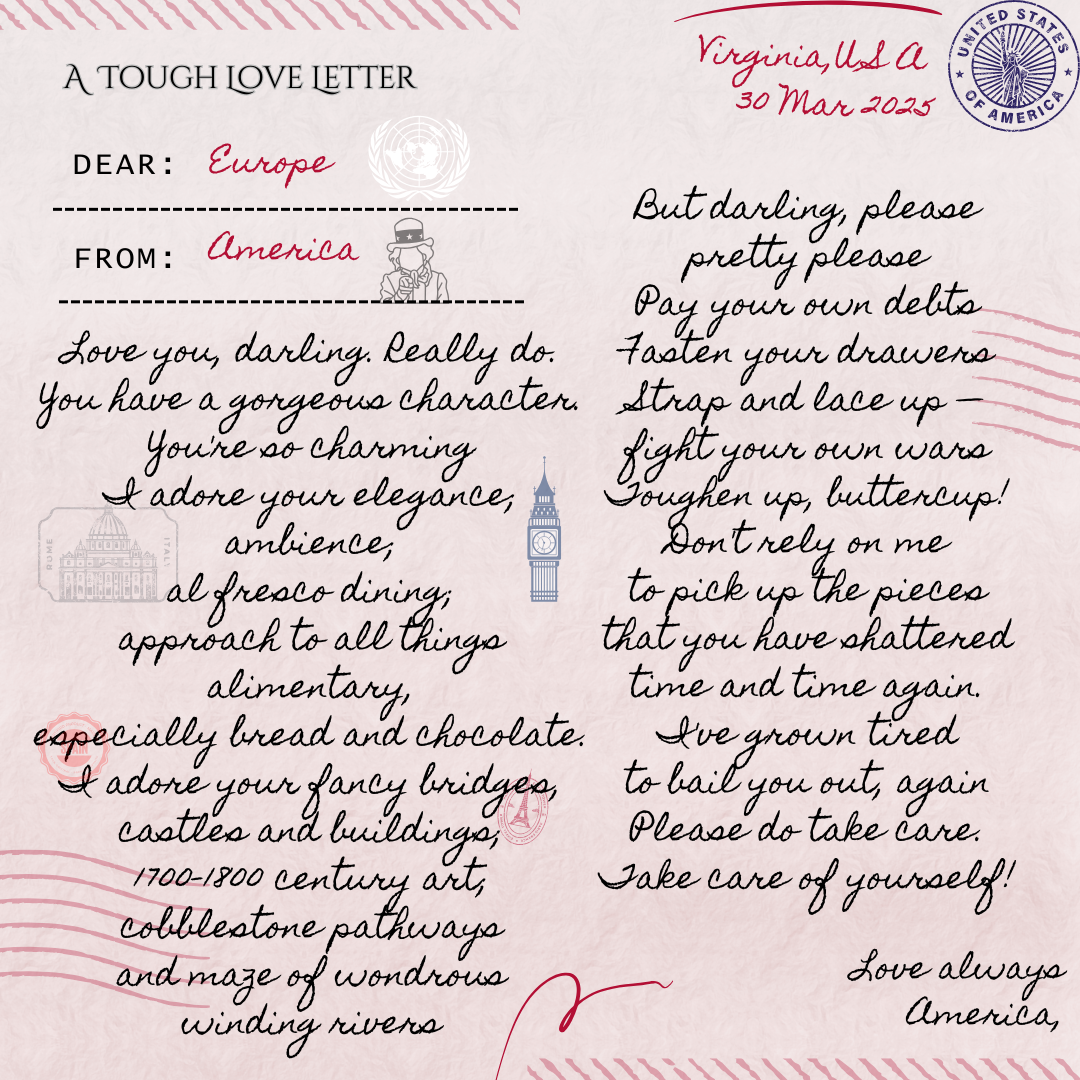 A TOUGH LOVE LETTER
DEAR: Europe
FROM: America
Love you, darling. Really do.
You have a gorgeous character.
You're so charming
I adore your elegance,
ambience,
al fresco dining,
approach to all things
alimentary,
especially bread and chocolate.
I adore your fancy bridges,
castles and buildings,
1700-1800 century art,
cobblestone pathways
and maze of wondrous
winding rivers
Virginia, USA
30 Mar 2025
UNITED STATES
OF AMERICA
But darling, please
pretty please
Pay your own debts
Fasten your drawers
Strap and lace up —
fight your own wars
Toughen up, buttercup!
Don't rely on me
to pick up the pieces
that you have shattered
time and time again.
I've grown tired
to bail you out, again
Please do take care.
Take care of yourself!
Love always
America,
ROME
ITALY